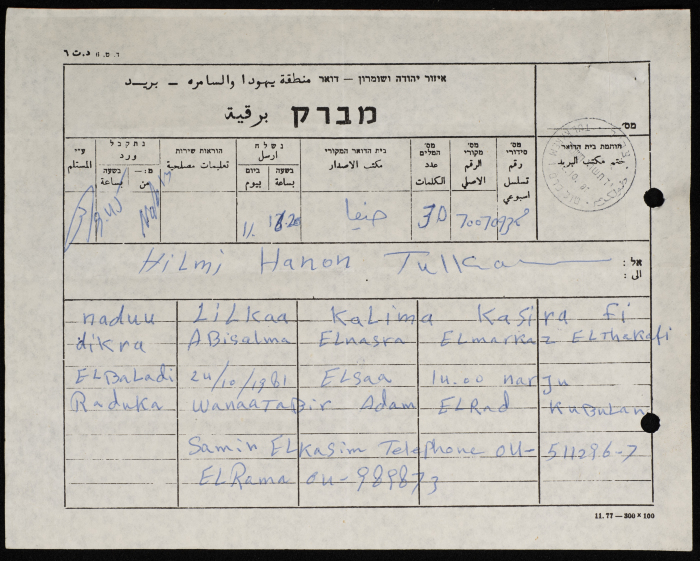 ד. ת 6
איזור יהודה ושומרון – דואר منطقة يهودا والسامره – بريد
מברק برقية
מס׳
ע״י
المستلم
נתקבל
ورد
בשעה
بساعة
מ: –
من
הוראות שירות
تعليمات مصلحية
נשלח
ارسل
ביום
بيوم
בשעה
بساعة
בית הדואר המקורי
مكتب الاصدار
מס׳ המלים
عدد الكلمات
מס׳ מקורי
الرقم الاصلي
מס׳ סידורי
رقم تسلسل اسبوعي
חותמת בית הדואר
ختم مكتب البريد
11. حيفا 30
אל :
الى :
Hilmi Hanon Tulka
naduu LiLkaa kaLima Kasira fi
dikra ABisalma Elnasra Elmarkaz ELThakafi
ELBaLadi 24/10/1981 ELsaa 14.00 narju
Raduka wanaaTabir Adam ELRad KuBulan
Samih ELkasim Telephone 04- 511296-7
ELRama 04-989873
11.77 — 300 × 100